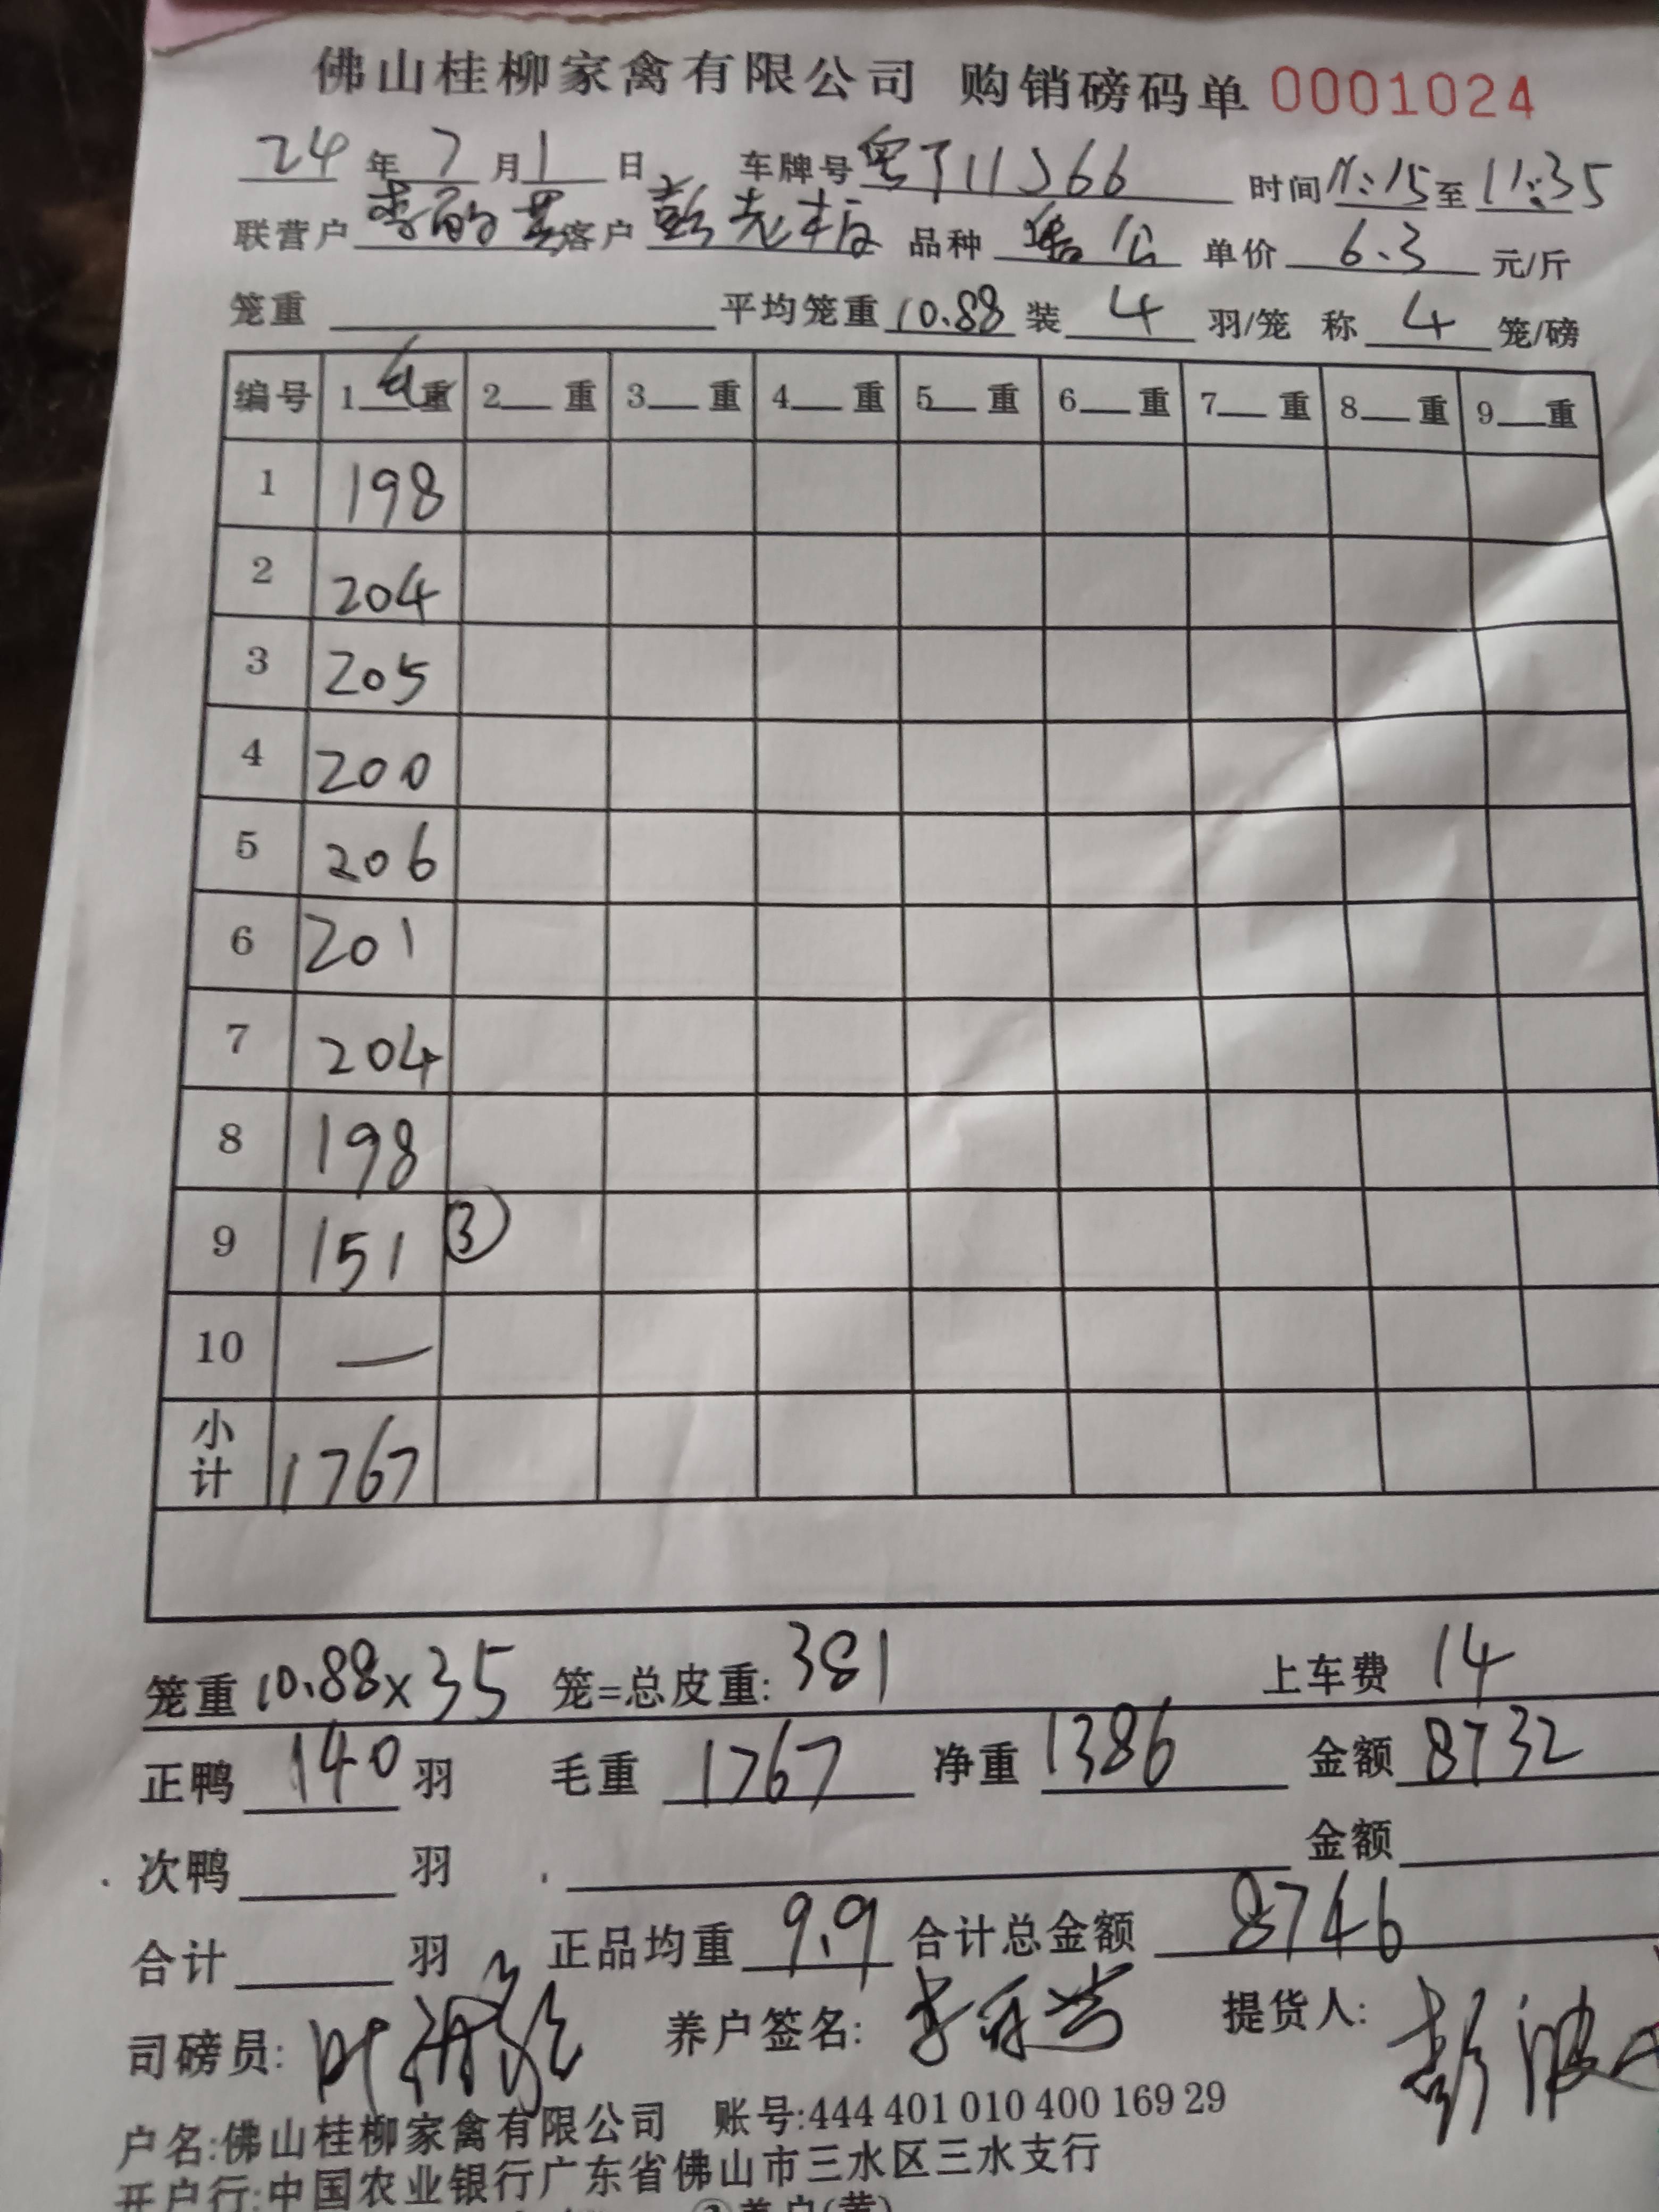 佛山桂柳家禽有限公司 购销磅码单 0001024
24 年 7 月 1 日 车牌号 粤J11J66 时间 11:15 至 11:35
联营户 李 客户 彭 品种 公 单价 6.3 元/斤
笼重 平均笼重 10.88 装 4 羽/笼 称 4 笼/磅
编号 1 重 2 重 3 重 4 重 5 重 6 重 7 重 8 重 9 重
1 198
2 204
3 205
4 200
5 206
6 201
7 204
8 198
9 151 ③
10 —
小计 1767
笼重 10.88×35 笼=总皮重: 381 上车费 14
正鸭 140 羽 毛重 1767 净重 1386 金额 8732
次鸭 羽 金额
合计 羽 正品均重 9.9 合计总金额 8746
司磅员: 养户签名: 李 提货人: 彭
户名:佛山桂柳家禽有限公司 账号:444 401 010 400 169 29
开户行:中国农业银行广东省佛山市三水区三水支行